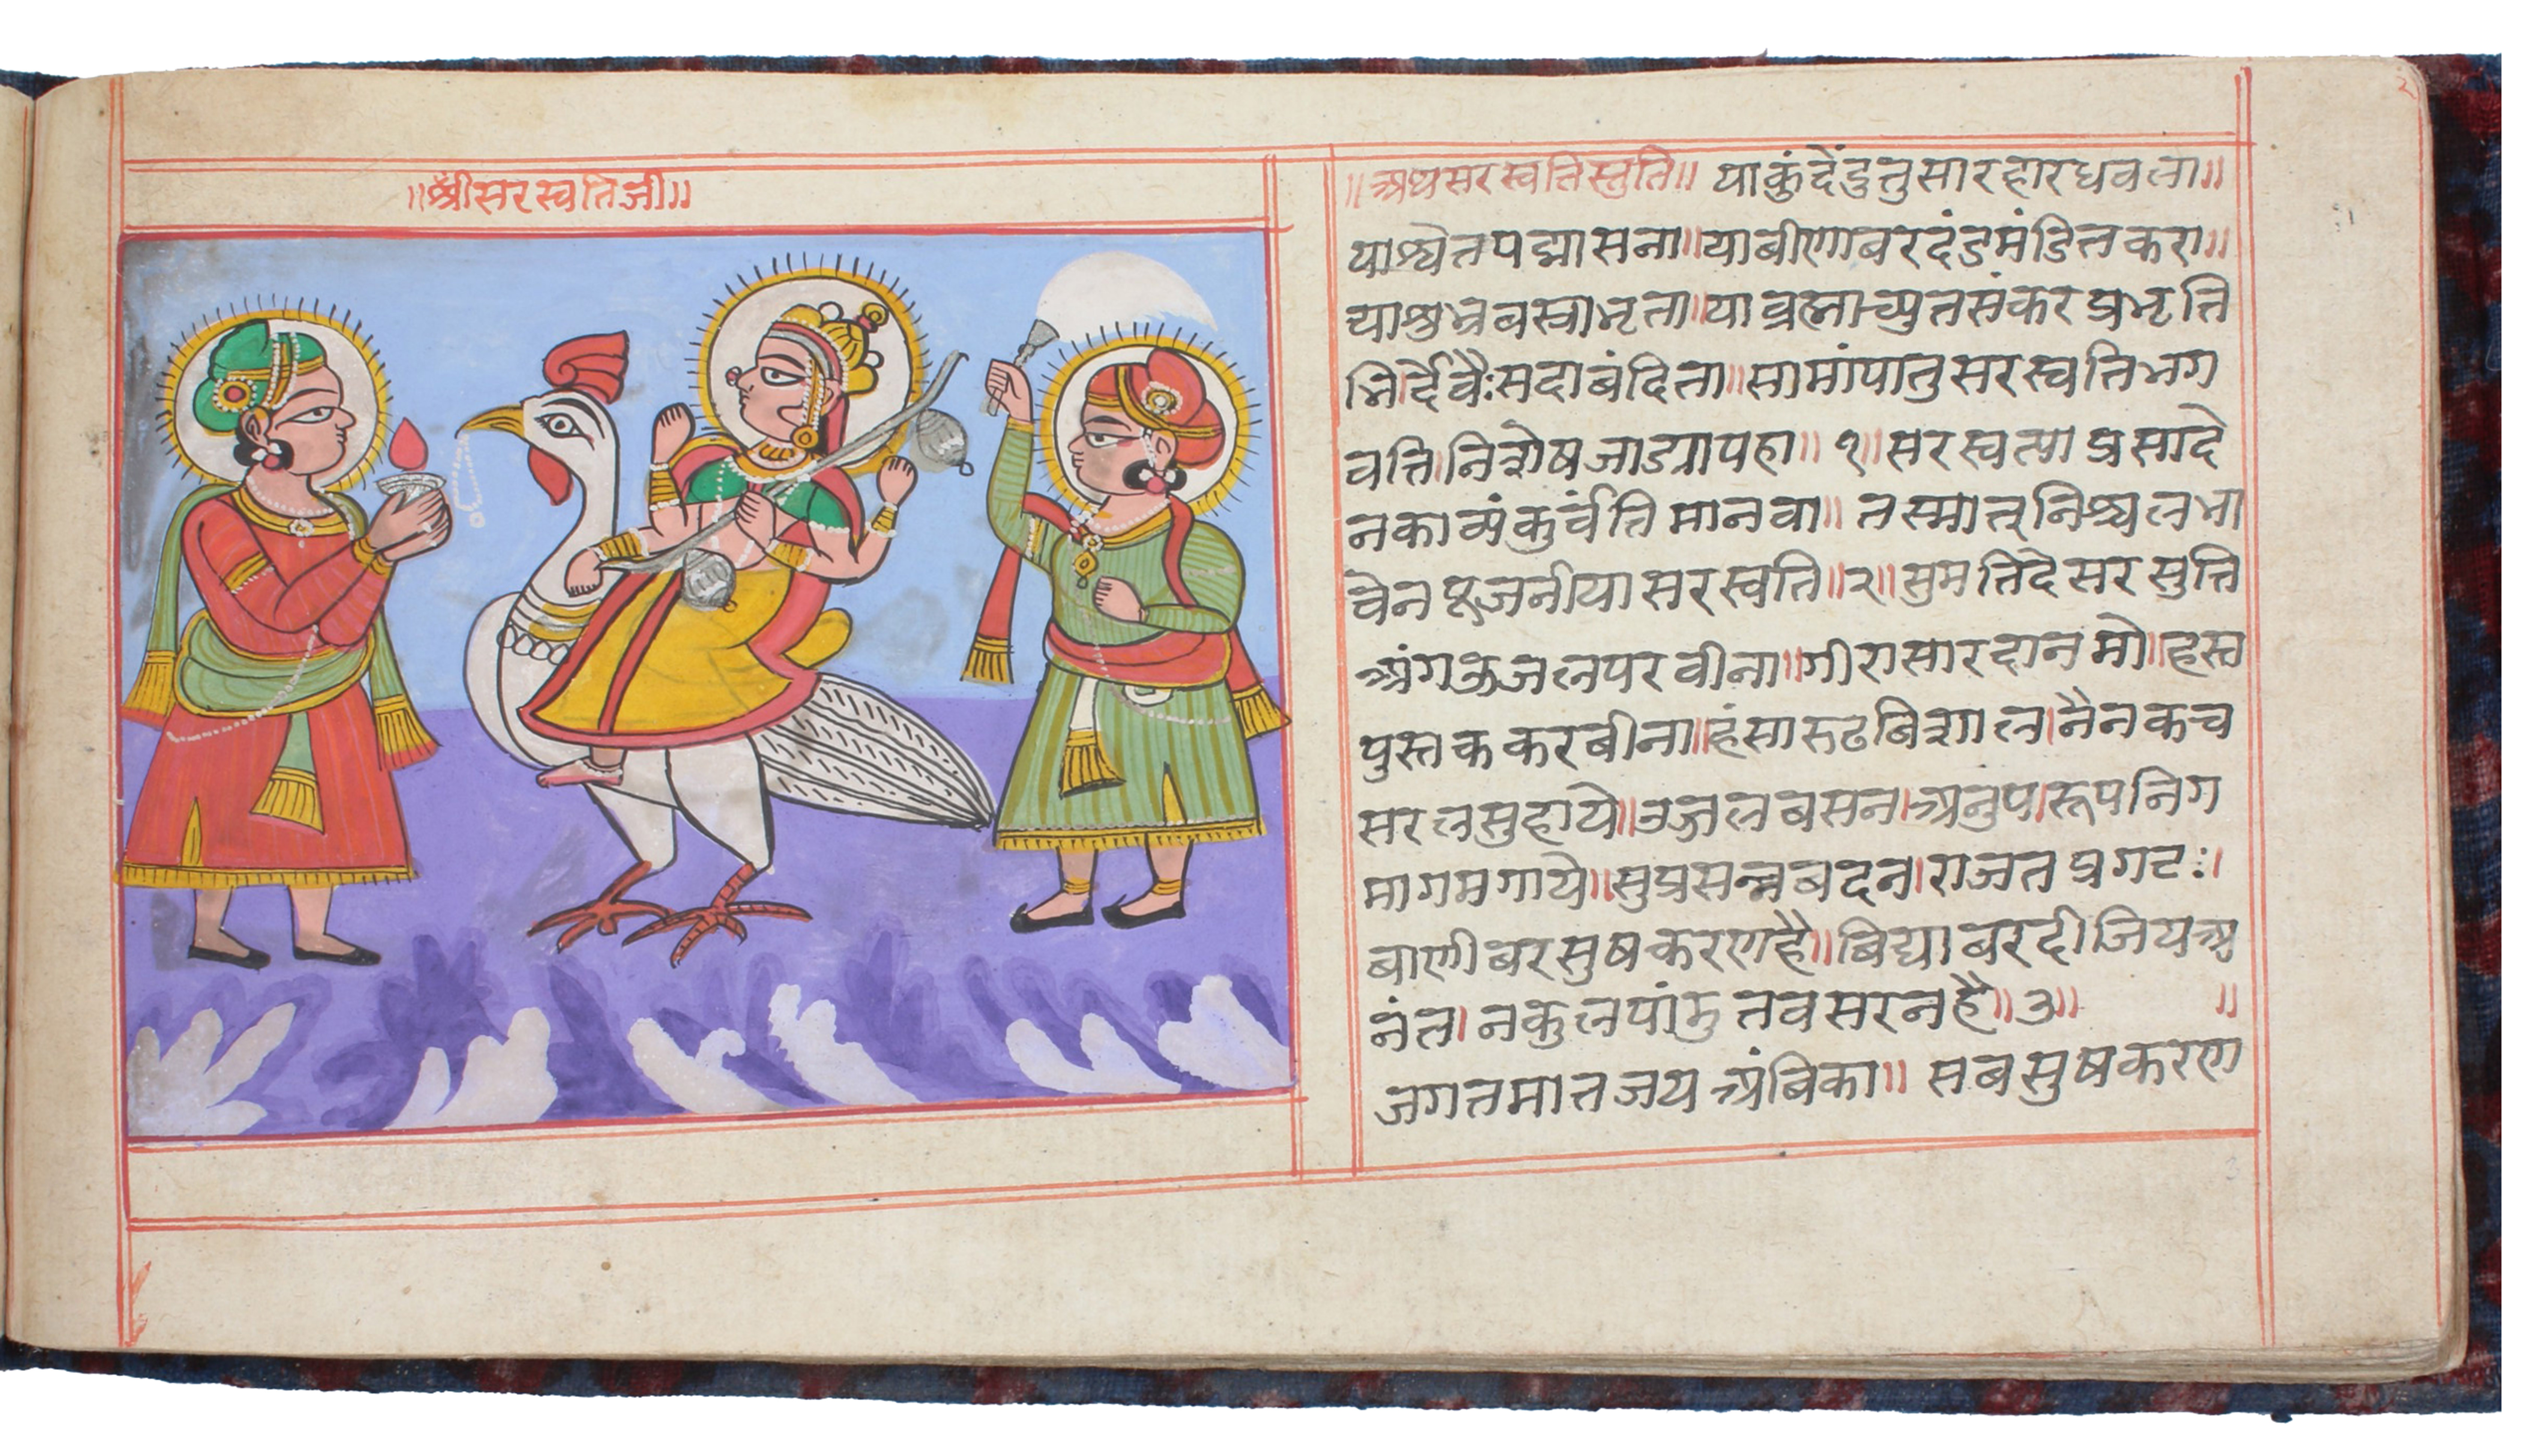 ॥श्रीसरस्वतिजी॥
॥अथसरस्वतिस्तुति॥ याकुंदेंदुतुसारहारधवला॥
याश्चेतपद्मासना॥याबीणाबरदंडमंडितकरा॥
याशुभ्रबस्त्राभृता॥याब्रह्माच्युतसंकरप्रभृति
भिर्देवैःसदाबंदिता॥सामांपातुसरस्वतिभग
वत्ति।निशेषजाड्यापहा॥१॥सरस्वत्याप्रसादे
नकाव्यंकुर्वंतिमानवा॥तस्मात्निश्चलभा
वेनपूजनीयासरस्वति॥२॥सुमतिदेसरसुत्ति
अंगऊजलपरवीना॥गीरासारदानमो॥हस्त
पुस्तककरबीना॥हंसारुढबिशाल।नैनकच
सरलसुहाये॥उजलबसन।अनुप।रूपनिग
मागमगाये॥सुप्रसन्नबदन।राजतप्रगट:।
बाणीबरसुषकरणहै॥बिद्याबरदीजियअ
नंत।नकुलपांडुतवसरनहै॥३॥ ॥
जगतमातजयअंबिका॥ सबसुषकरण